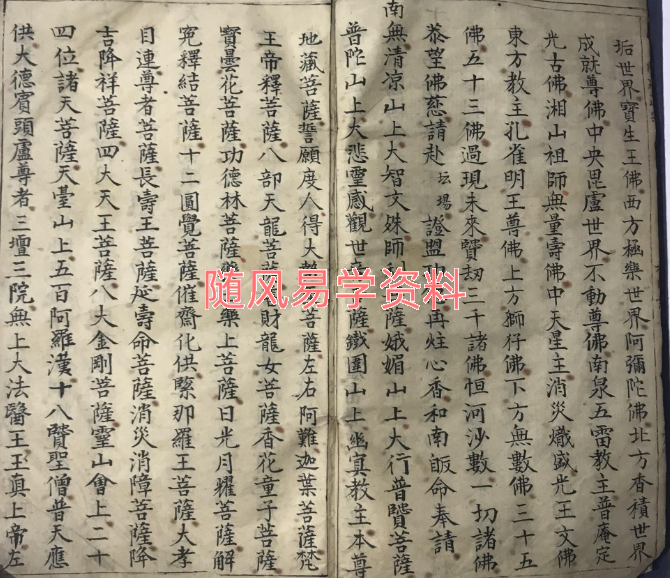 垢世界寶生王佛西方極樂世界阿彌陀佛北方香積世界
成就尊佛中央毘盧世界不動尊佛南泉五雷教主普庵定
光古佛湘山祖師無量壽佛中天星主消災熾盛光王文佛
東方教主孔雀明王尊佛上方獅仔佛下方無數佛三十五
佛五十三佛過現未來賢劫三千諸佛恒河沙數一切諸佛
恭望佛慈請赴坛場證盟 再炷心香和南皈命奉請
南無清凉山上大智文殊師 薩娥媚山上大行普賢菩薩
普陀山上大悲靈感觀世 薩鐵圍山上幽冥教主本尊
地藏菩薩誓願度人得大 菩薩左右阿難迦葉菩薩梵
王帝釋菩薩八部天龍菩 財龍女菩薩香花童子菩薩
寶曇花菩薩功德林菩薩 樂上菩薩日光月耀菩薩解
寃釋結菩薩十二圓覺菩薩催齋化供緊那羅王菩薩大孝
目連尊者菩薩長壽王菩薩延壽命菩薩消災消障菩薩降
吉降祥菩薩四大天王菩薩八大金剛菩薩靈山會上二十
四位諸天菩薩天臺山上五百阿羅漢十八賢聖僧普天應
供大德賓頭盧尊者三壇三院無上大法醫王玉眞上帝左
随风易学资料